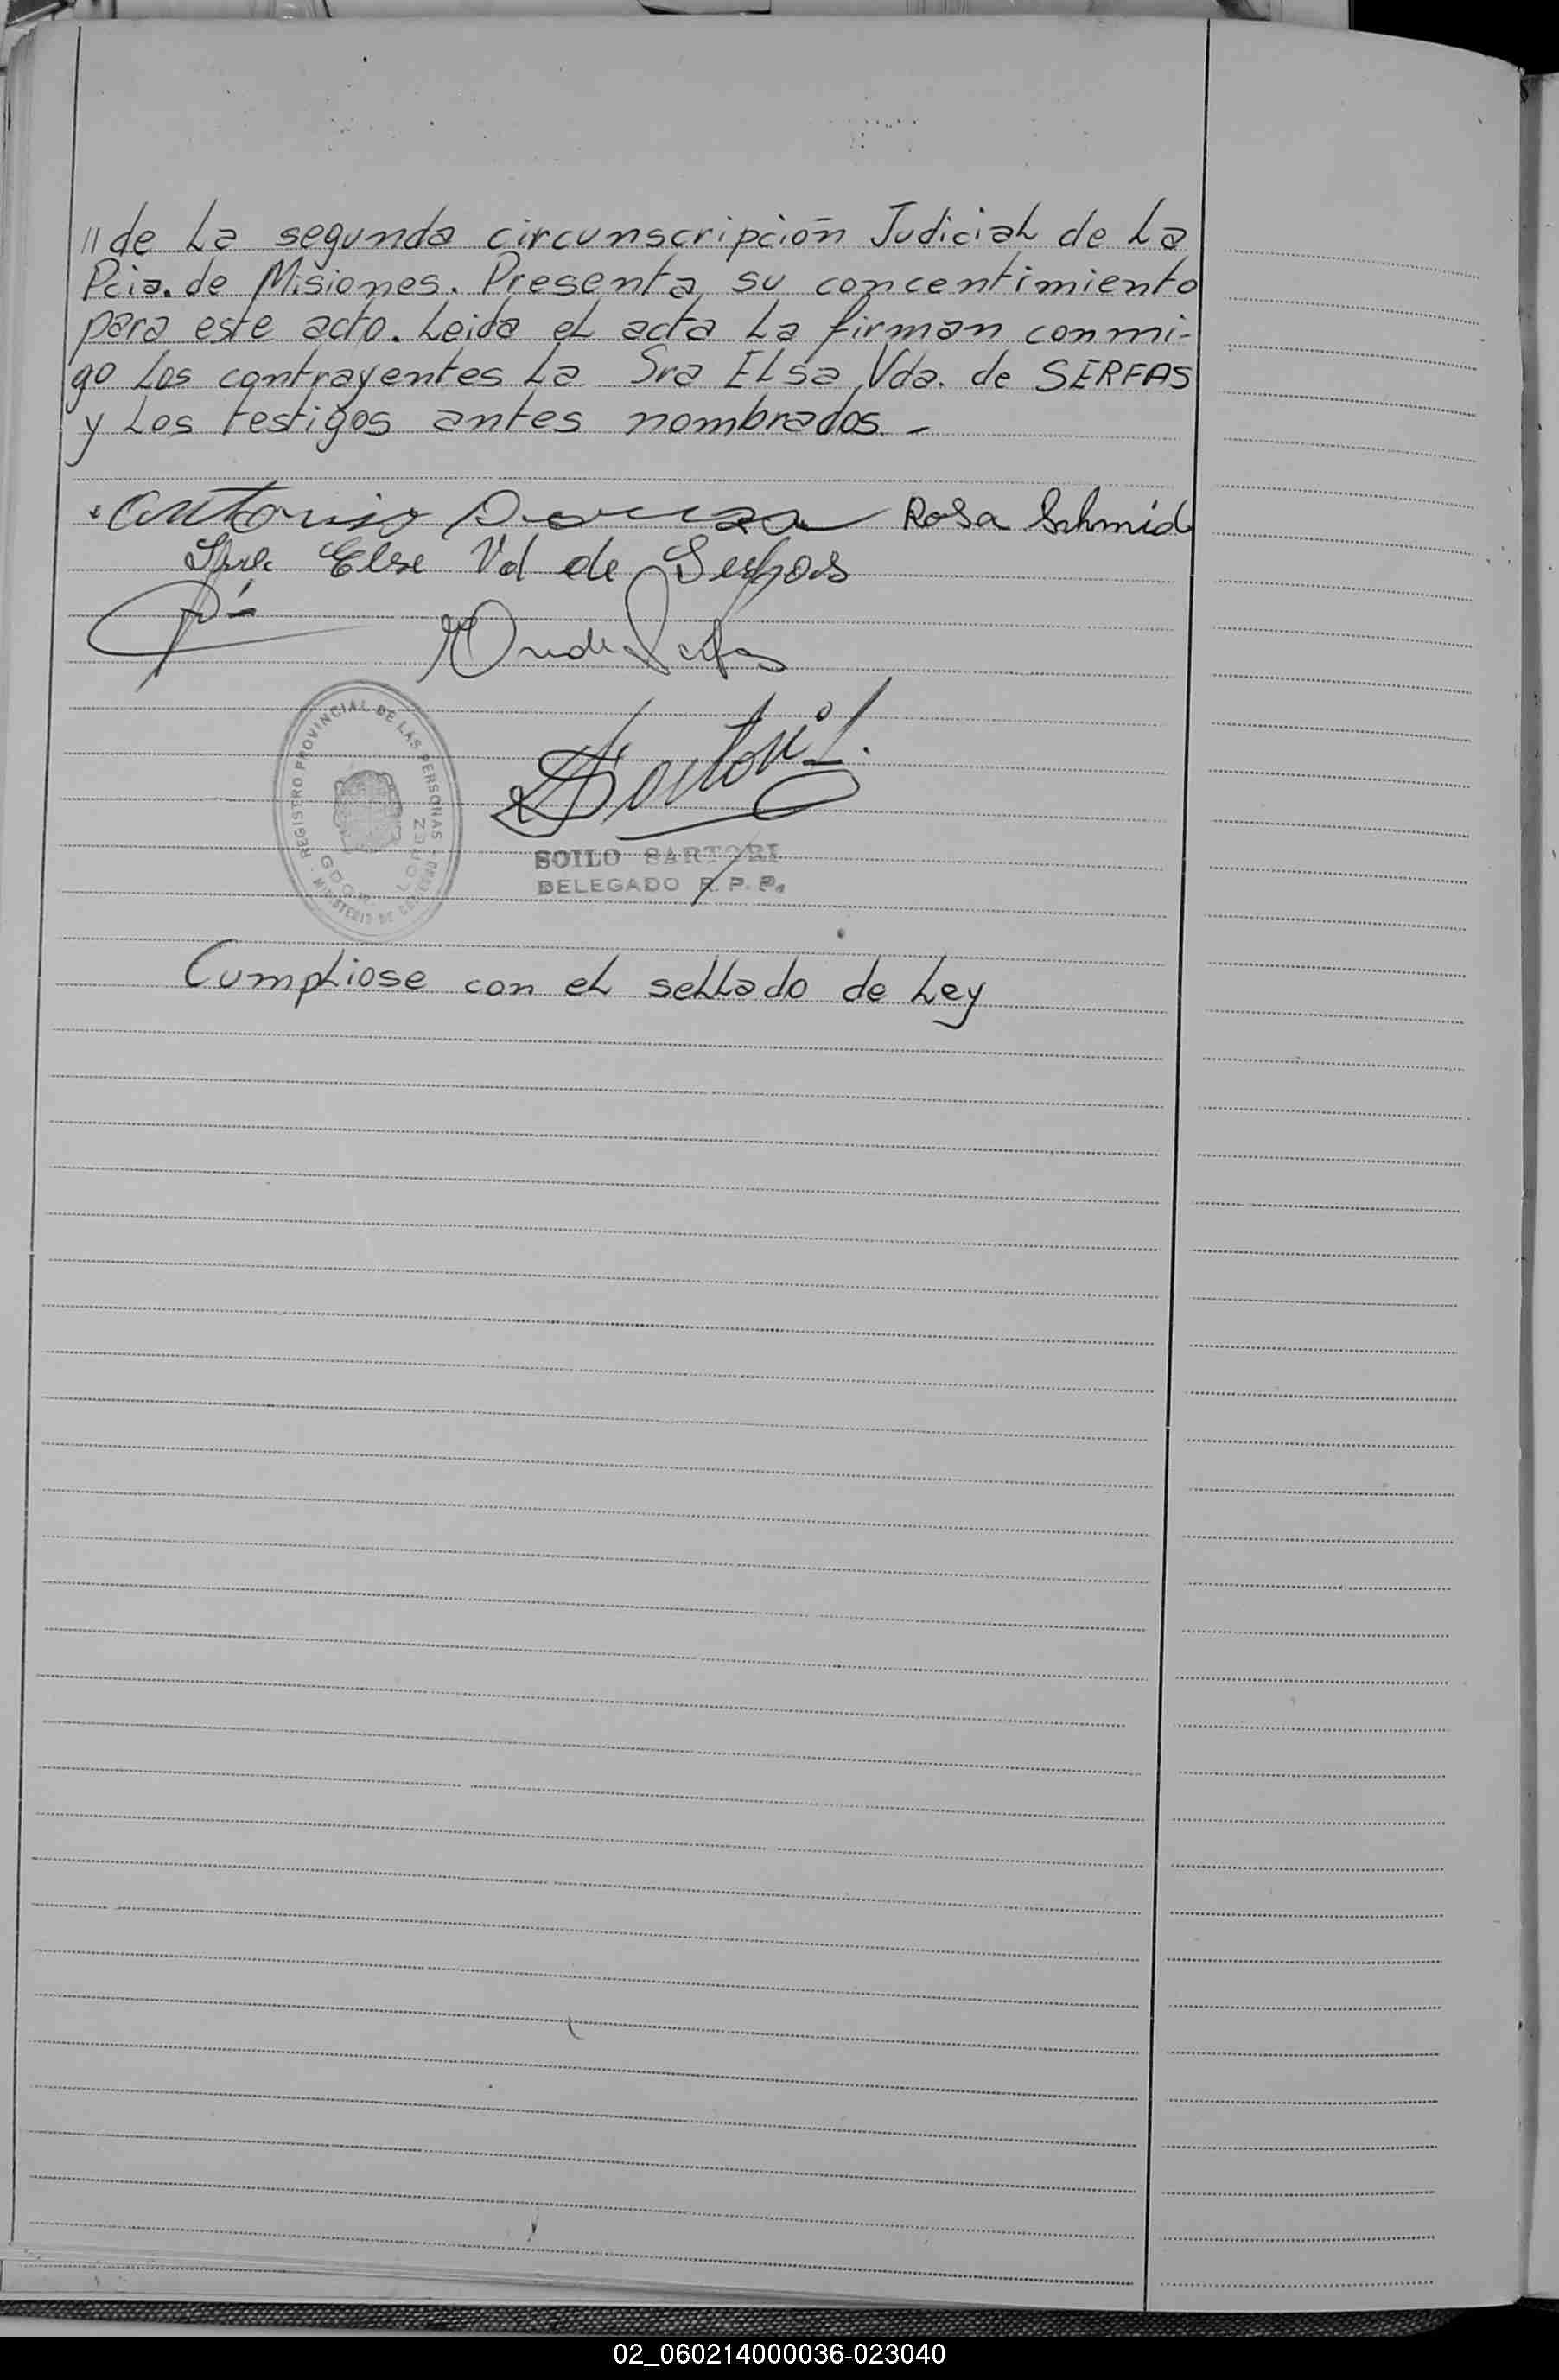 // de La segunda circunscripción Judicial de La
Pcia. de Misiones. Presenta su concentimiento
para este acto. Leida el acta La firman conmi-
go Los contrayentes La Sra ELsa Vda. de SERFAS
y Los testigos antes nombrados. -
Antonio Rosa Schmid
Else Vd de
REGISTRO PROVINCIAL DE LAS PERSONAS
MINISTERIO DE GOBIERNO
GDOR. LOPEZ
Sartori
SOILO SARTORI
DELEGADO R. P. P.
Cumpliose con el sellado de Ley
02_060214000036-023040